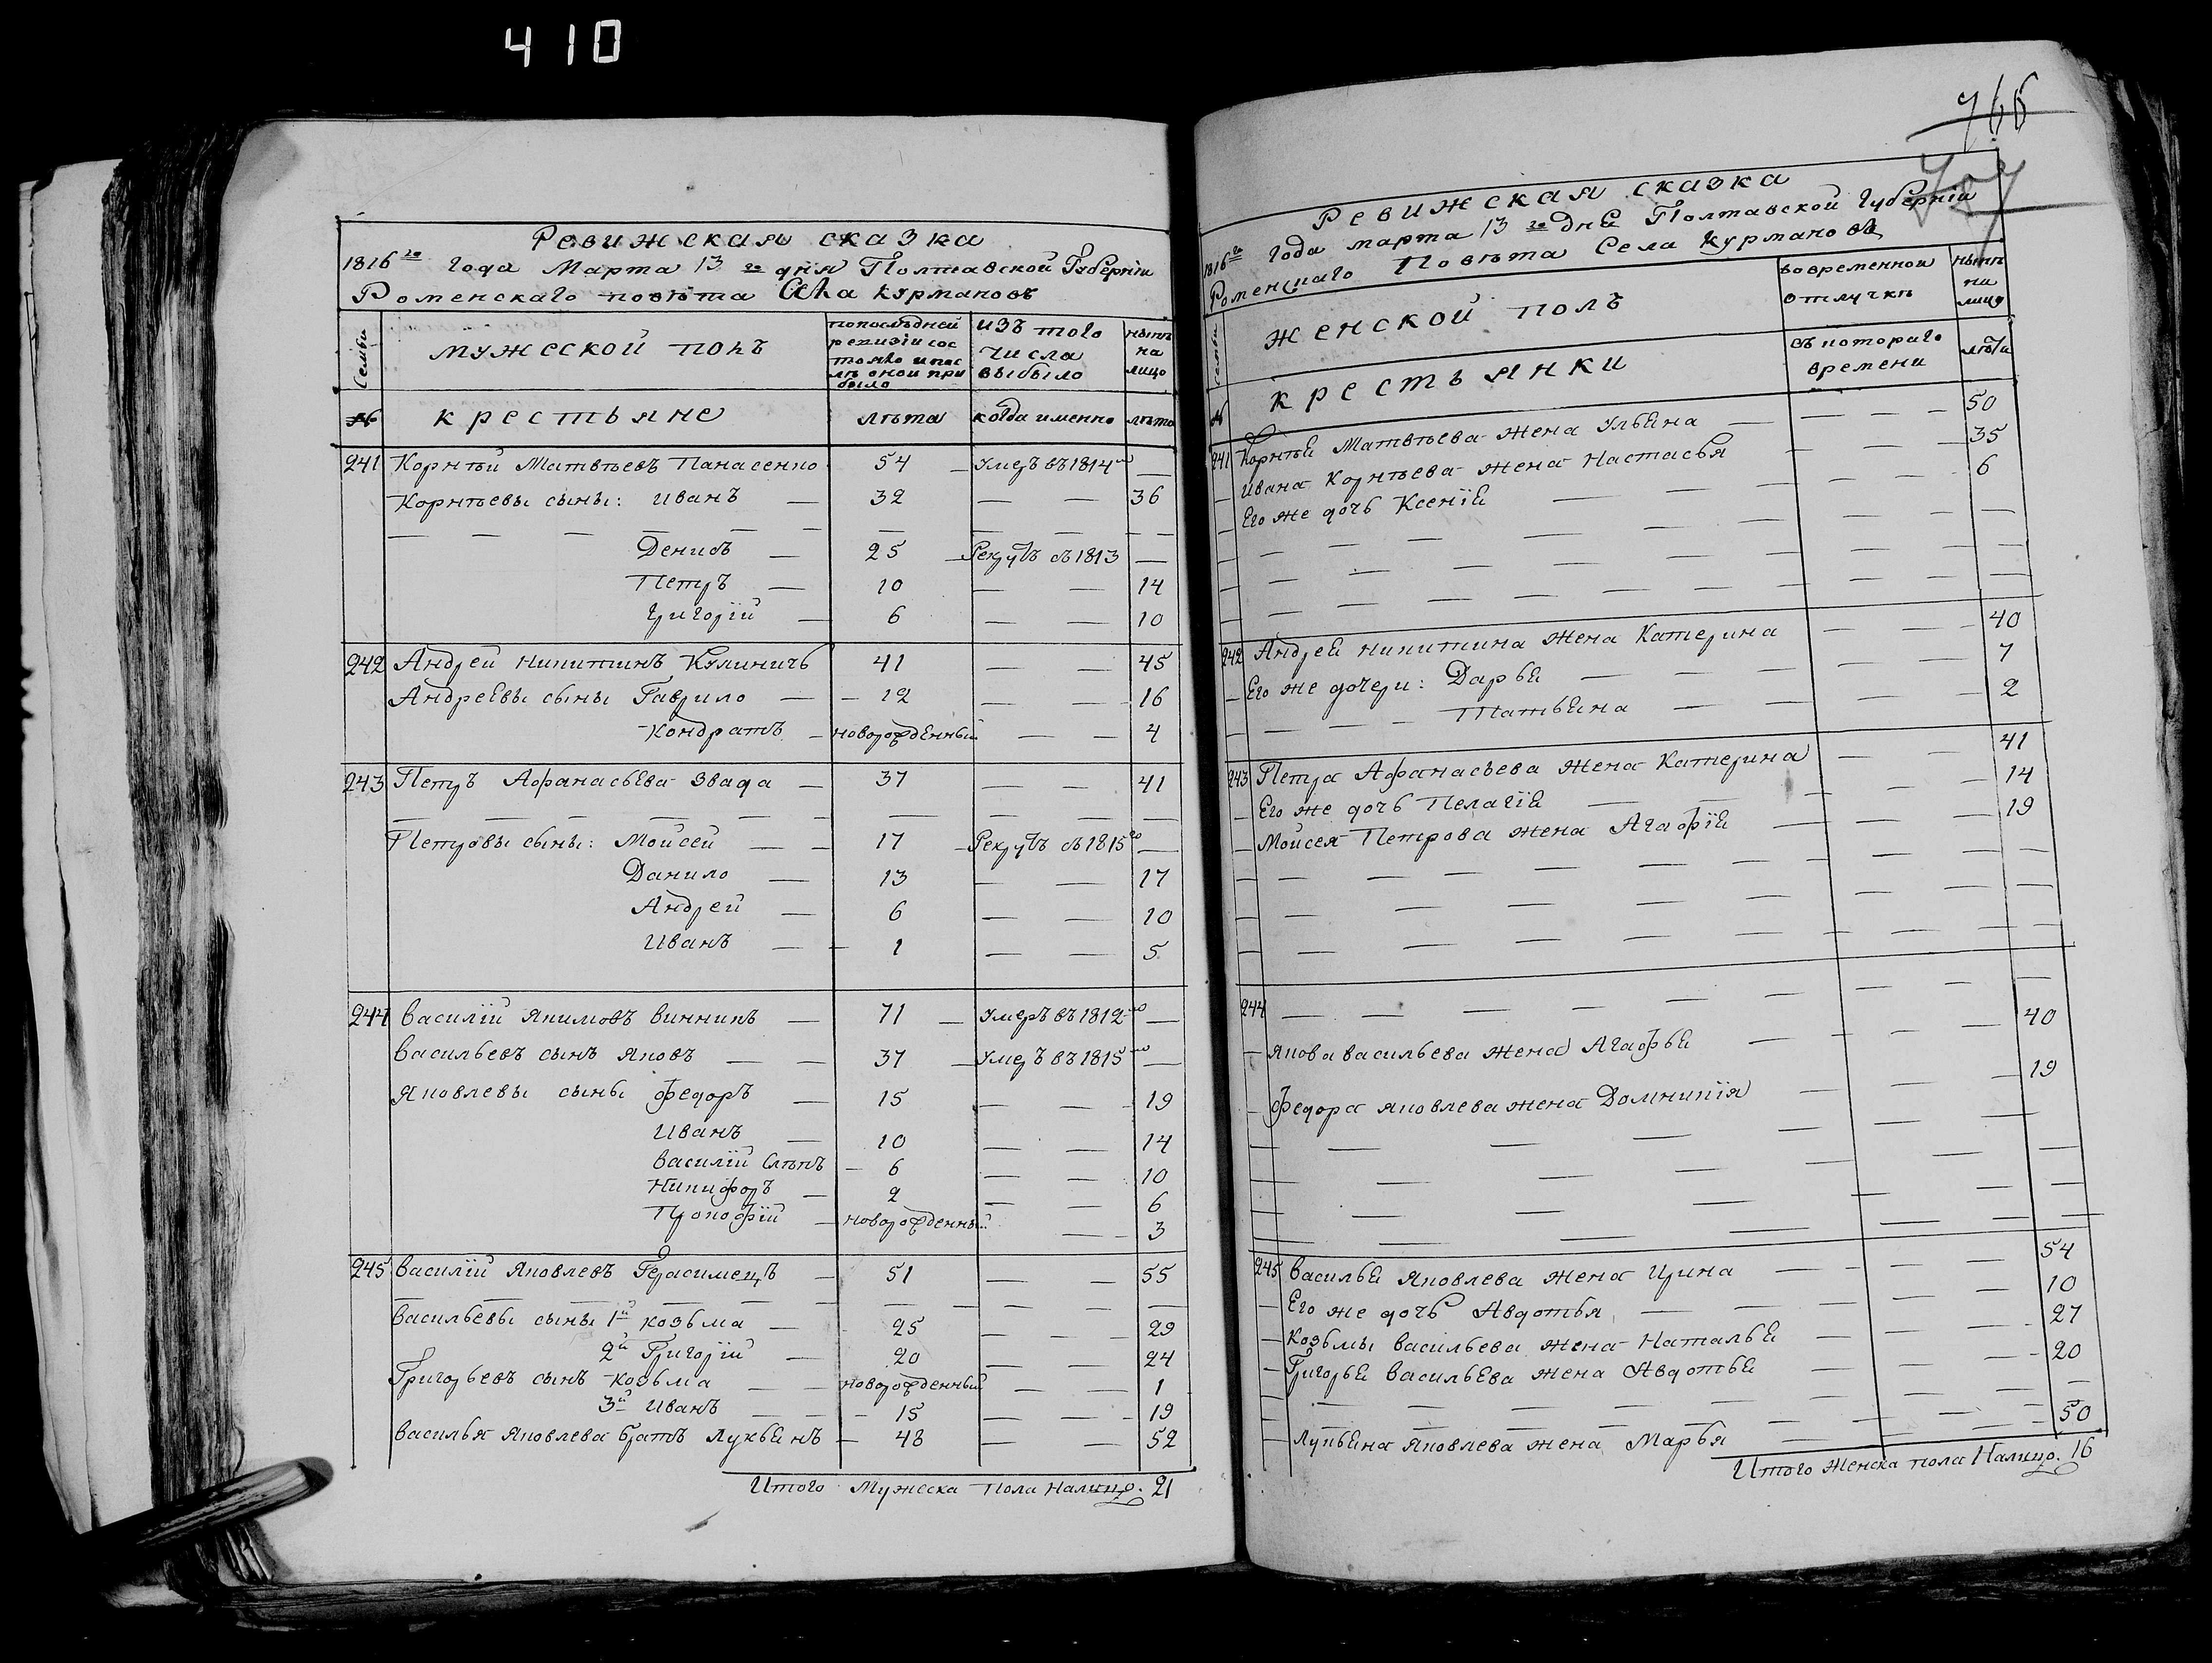 410
Ревижская сказка
1816го Года Марта 13го дня Полтавской Губерніи
Роменскаго повѣта Села Курмановъ
Семьи
мужеской полъ
попослѣдней ревизіи состояло и послѣ оной прибыло
изъ того числа выбыло
нынѣ на лицо
№ крестьяне лѣта когда именно лѣта
241 Корнѣй Матвѣевъ Панасенко 54 — Умеръ въ 1814мъ —
Корнѣевы сыны: Иванъ — 32 — — 36
— — — — — — — — — —
Денисъ — 25 — Рекрутъ съ 1813 —
Петръ — 10 — — 14
Григорій — 6 — — 10
242 Андрей Никитинъ Кулиничъ 41 — — 45
Андреевы сыны Гаврило — 12 — — 16
Кондратъ — новорожденный — — 4
243 Петръ Афанасьева Звада — 37 — — 41
— — — — — — — — — —
Петровы сыны: Мойсей — — 17 — Рекрутъ съ 1815го —
Данило — 13 — — 17
Андрей — 6 — — 10
Иванъ — — 1 — — 5
244 Василій Якимовъ Винникъ — 71 — Умеръ въ 1812мъ —
Васильевъ сынъ Яковъ — — 37 — Умеръ въ 1815мъ —
Яковлевы сыны Федоръ — 15 — — 19
Иванъ — 10 — — 14
Василій Слѣпъ — 6 — — 10
Никифоръ — 2 — — 6
Прокофій — новорожденный — 3
245 Василій Яковлевъ Герасимецъ — 51 — — 55
— — — — — — — — — —
Васильевы сыны 1й Козьма — 25 — — 29
2й Григорій — 20 — — 24
Григорьевъ сынъ Козьма — — новорожденный — — 1
3й Иванъ — — 15 — — 19
Василья Яковлева братъ Лукьянъ — 48 — — 52
Итого Мужеска пола налицо. 21
766
Ревижская сказка
1816го Года марта 13го дня Полтавской Губерніи
Роменскаго Повѣта Села Курмановъ
Семьи
женской полъ
во временной отлучкѣ
нынѣ на лицо
№ крестьянки
съ котораго времени
лѣта
241 Корнѣя Матвѣева жена Ульяна — — — — 50
— Ивана Корнѣева жена Настасья — — — 35
— Его же дочь Ксенія — — — — — 6
— — — — — — — — — —
— — — — — — — — — —
— — — — — — — — — —
242 Андрея Никитина жена Катерина — — — 40
— Его же дочери: Дарья — — — — — 7
— — — — Татьяна — — — — — 2
243 Петра Афанасьева жена Катерина — — — 41
— Его же дочь Пелагія — — — — — 14
— Мойсея Петрова жена Агафія — — — 19
— — — — — — — — — —
— — — — — — — — — —
— — — — — — — — — —
244 — — — — — — — — —
— Якова Васильева жена Агафья — — — — 40
— Федора Яковлева жена Домникія — — — 19
— — — — — — — —
— — — — — — — —
— — — — — — — —
— — — — — — — —
245 Василья Яковлева жена Ирина — — — — 54
— Его же дочь Авдотья — — — — — 10
— Козьмы Васильева жена Наталья — — — 27
— Григорья Васильева жена Авдотья — — — 20
— — — — — — — — — —
— Лукьяна Яковлева жена Марья — — — 50
Итого Женска пола Налицо. 16